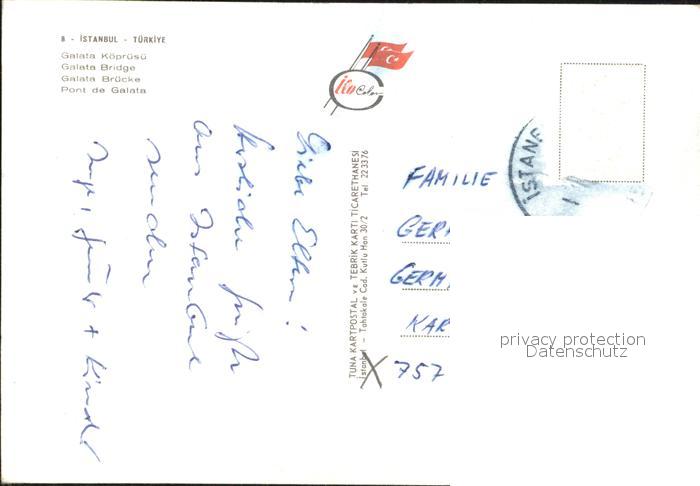 8 - İSTANBUL - TÜRKİYE
Galata Köprüsü
Galata Bridge
Galata Brücke
Pont de Galata
İCO Color
Liebe Eltern!
herzliche Grüße
aus Istanbul
senden
+ Kinder
TUNA KARTPOSTAL ve TEBRİK KARTI TİCARETHANESİ
İstanbul - Tahtakale Cad. Kutlu Han 30/2 Tel: 223376
İSTAN
FAMILIE
GER
GERM
KAR
757
privacy protection
Datenschutz